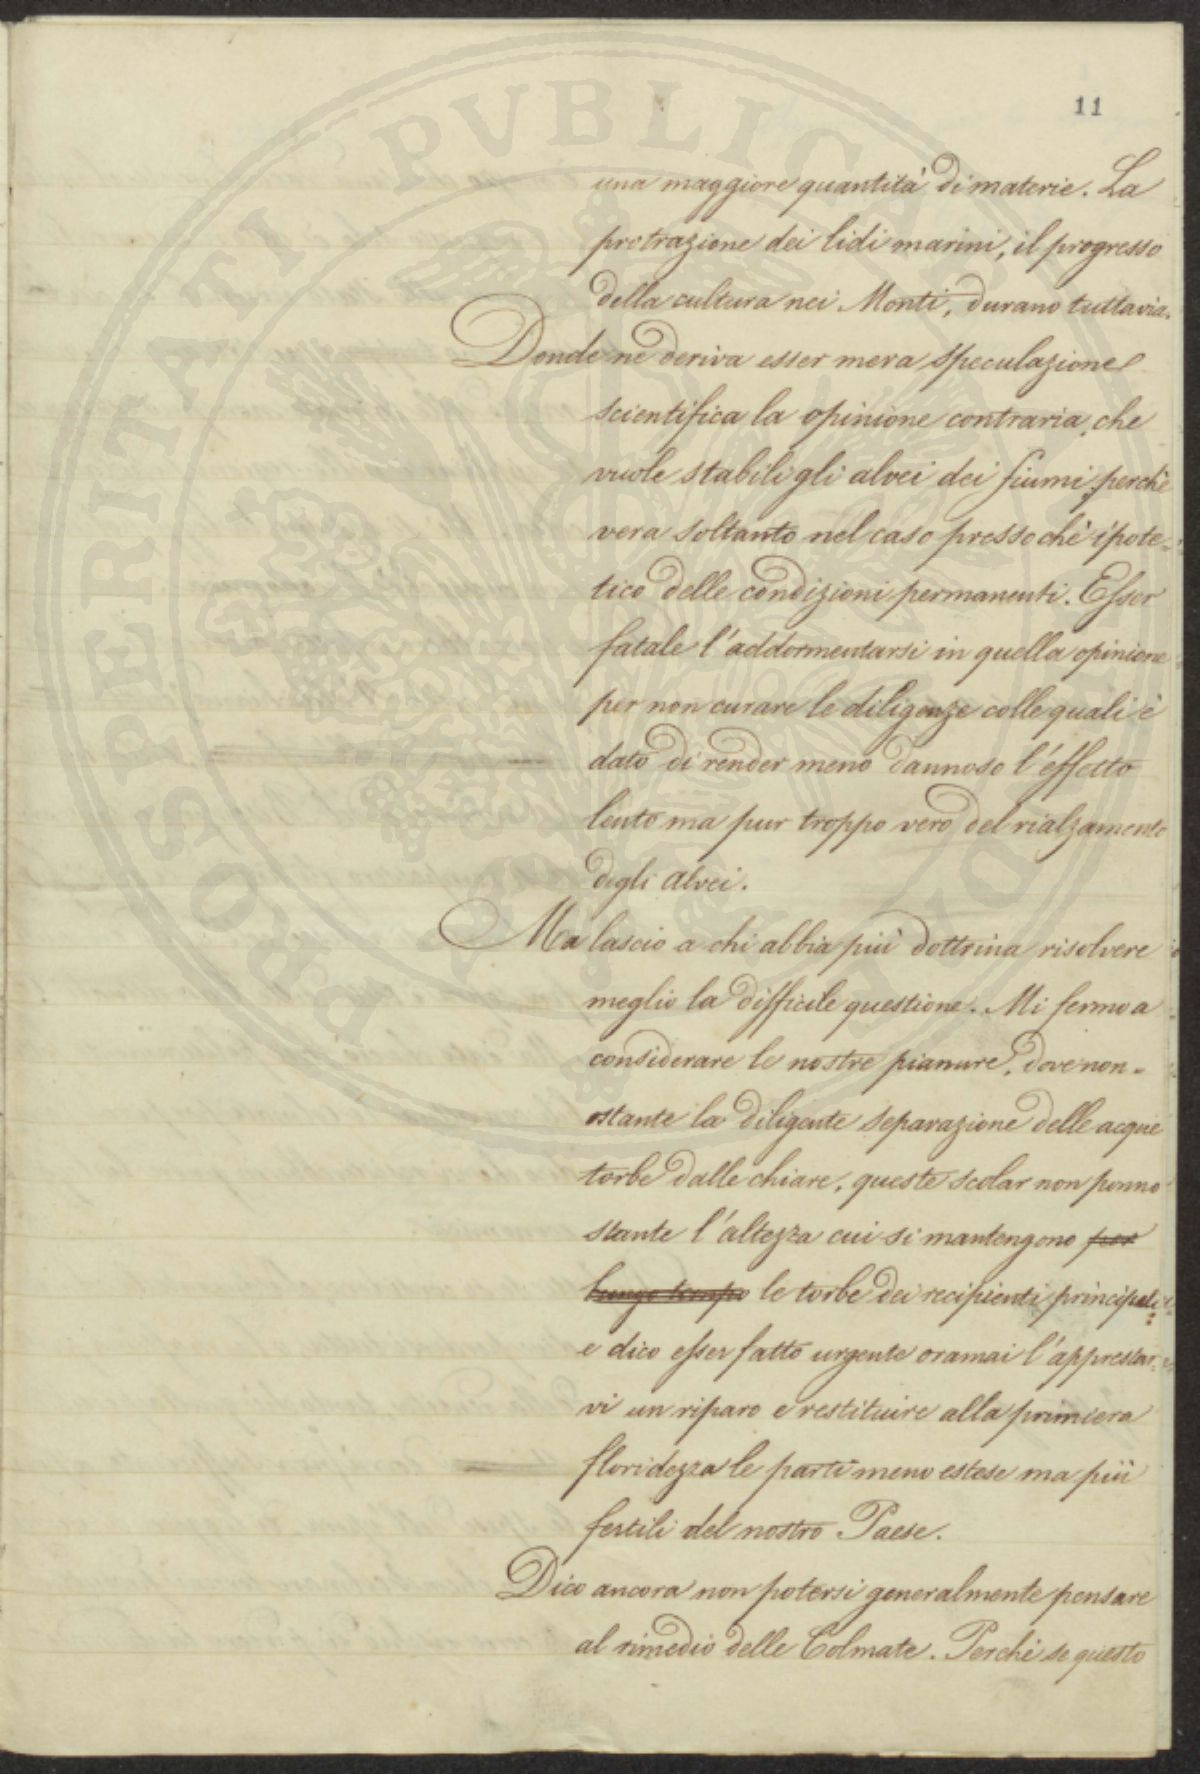 11
una maggiore quantità di materie. La
protrazione dei lidi marini, il progresso
della cultura nei Monti, durano tuttavia.
Donde ne deriva esser mera speculazione
scientifica la opinione contraria, che
vuole stabili gli alvei dei fiumi, perchè
vera soltanto nel caso pressochè ipote=
tico delle condizioni permanenti. Esser
fatale l'addormentarsi in quella opinione
per non curare le diligenze colle quali è
dato di render meno dannoso l'effetto
lento ma pur troppo vero del rialzamento
degli alvei.
Ma lascio a chi abbia più dottrina risolvere
meglio la difficile questione. Mi fermo a
considerare le nostre pianure, dove non=
ostante la diligente separazione delle acque
torbe dalle chiare, queste scolar non ponno
stante l'altezza cui si mantengono per
lungo tempo le torbe dei recipienti principali:
e dico esser fatto urgente oramai l'apprestar=
vi un riparo e restituire alla primiera
floridezza le parti meno estese ma più
fertili del nostro Paese.
Dico ancora non potersi generalmente pensare
al rimedio delle Colmate. Perchè se questo
PROSPERITATI PVBLICAE